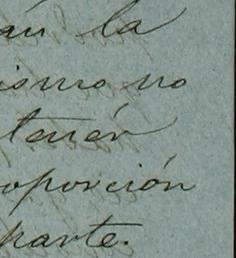 án la
ismo no
tener
oporción
parte.